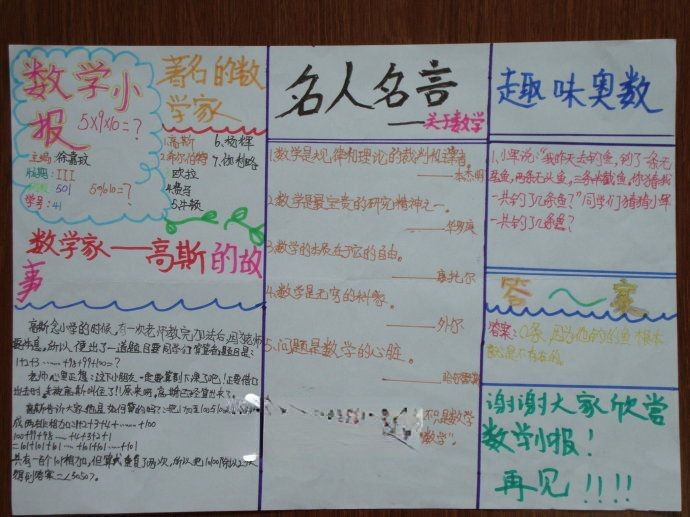 数学小
报
5×9×10=?
主编:徐嘉玟
版期:III
班级:501
学号:41
著名的数
学家
1.高斯
2.希尔伯特
欧拉
4.费马
5.牛顿
6.杨辉
7.伽利略
数学家——高斯的故
事
高斯念小学的时候,有一次老师教完加法后,因为老师
要休息,所以,便出了一道题目要同学们算算看,题目是:
1+2+3 ......+98+99+100=?
老师心里正想:这下小朋友一定要算到下课了吧!正要借口
出去时,却被高斯叫住了!!原来啊,高斯已经算出来了
高斯告诉大家他是如何算的吗?:把1加至100与100
成两排相加:1+2+3+4+......+100
100+99+98......+4+3+2+1
=101+101+101......+101+101......+101
共有一百个101相加,但算式重复了两次,所以把10100除以2
得到答案=<5050>.
名人名言
——关于数学
1.数学是规律和理论的裁判和
——本杰明
2.数学是最宝贵的研究精神之一。
——华罗庚
3.数学的本质在于它的自由。
——康托尔
4.数学是无穷的科学。
——外尔
5.问题是数学的心脏。
——哈尔莫斯
只是数学
数学”。
趣味奥数
1.小军说:“我昨天去钓鱼,钓了一条无
尾鱼,两条无头鱼,三条半截鱼。你猜我
一共钓了几条鱼?”同学们猜猜小军
一共钓了几条鱼?
答~案
答案:0条,因为他钓的鱼根本
都是不存在的。
谢谢大家欣赏
数学小报!
再见!!!!